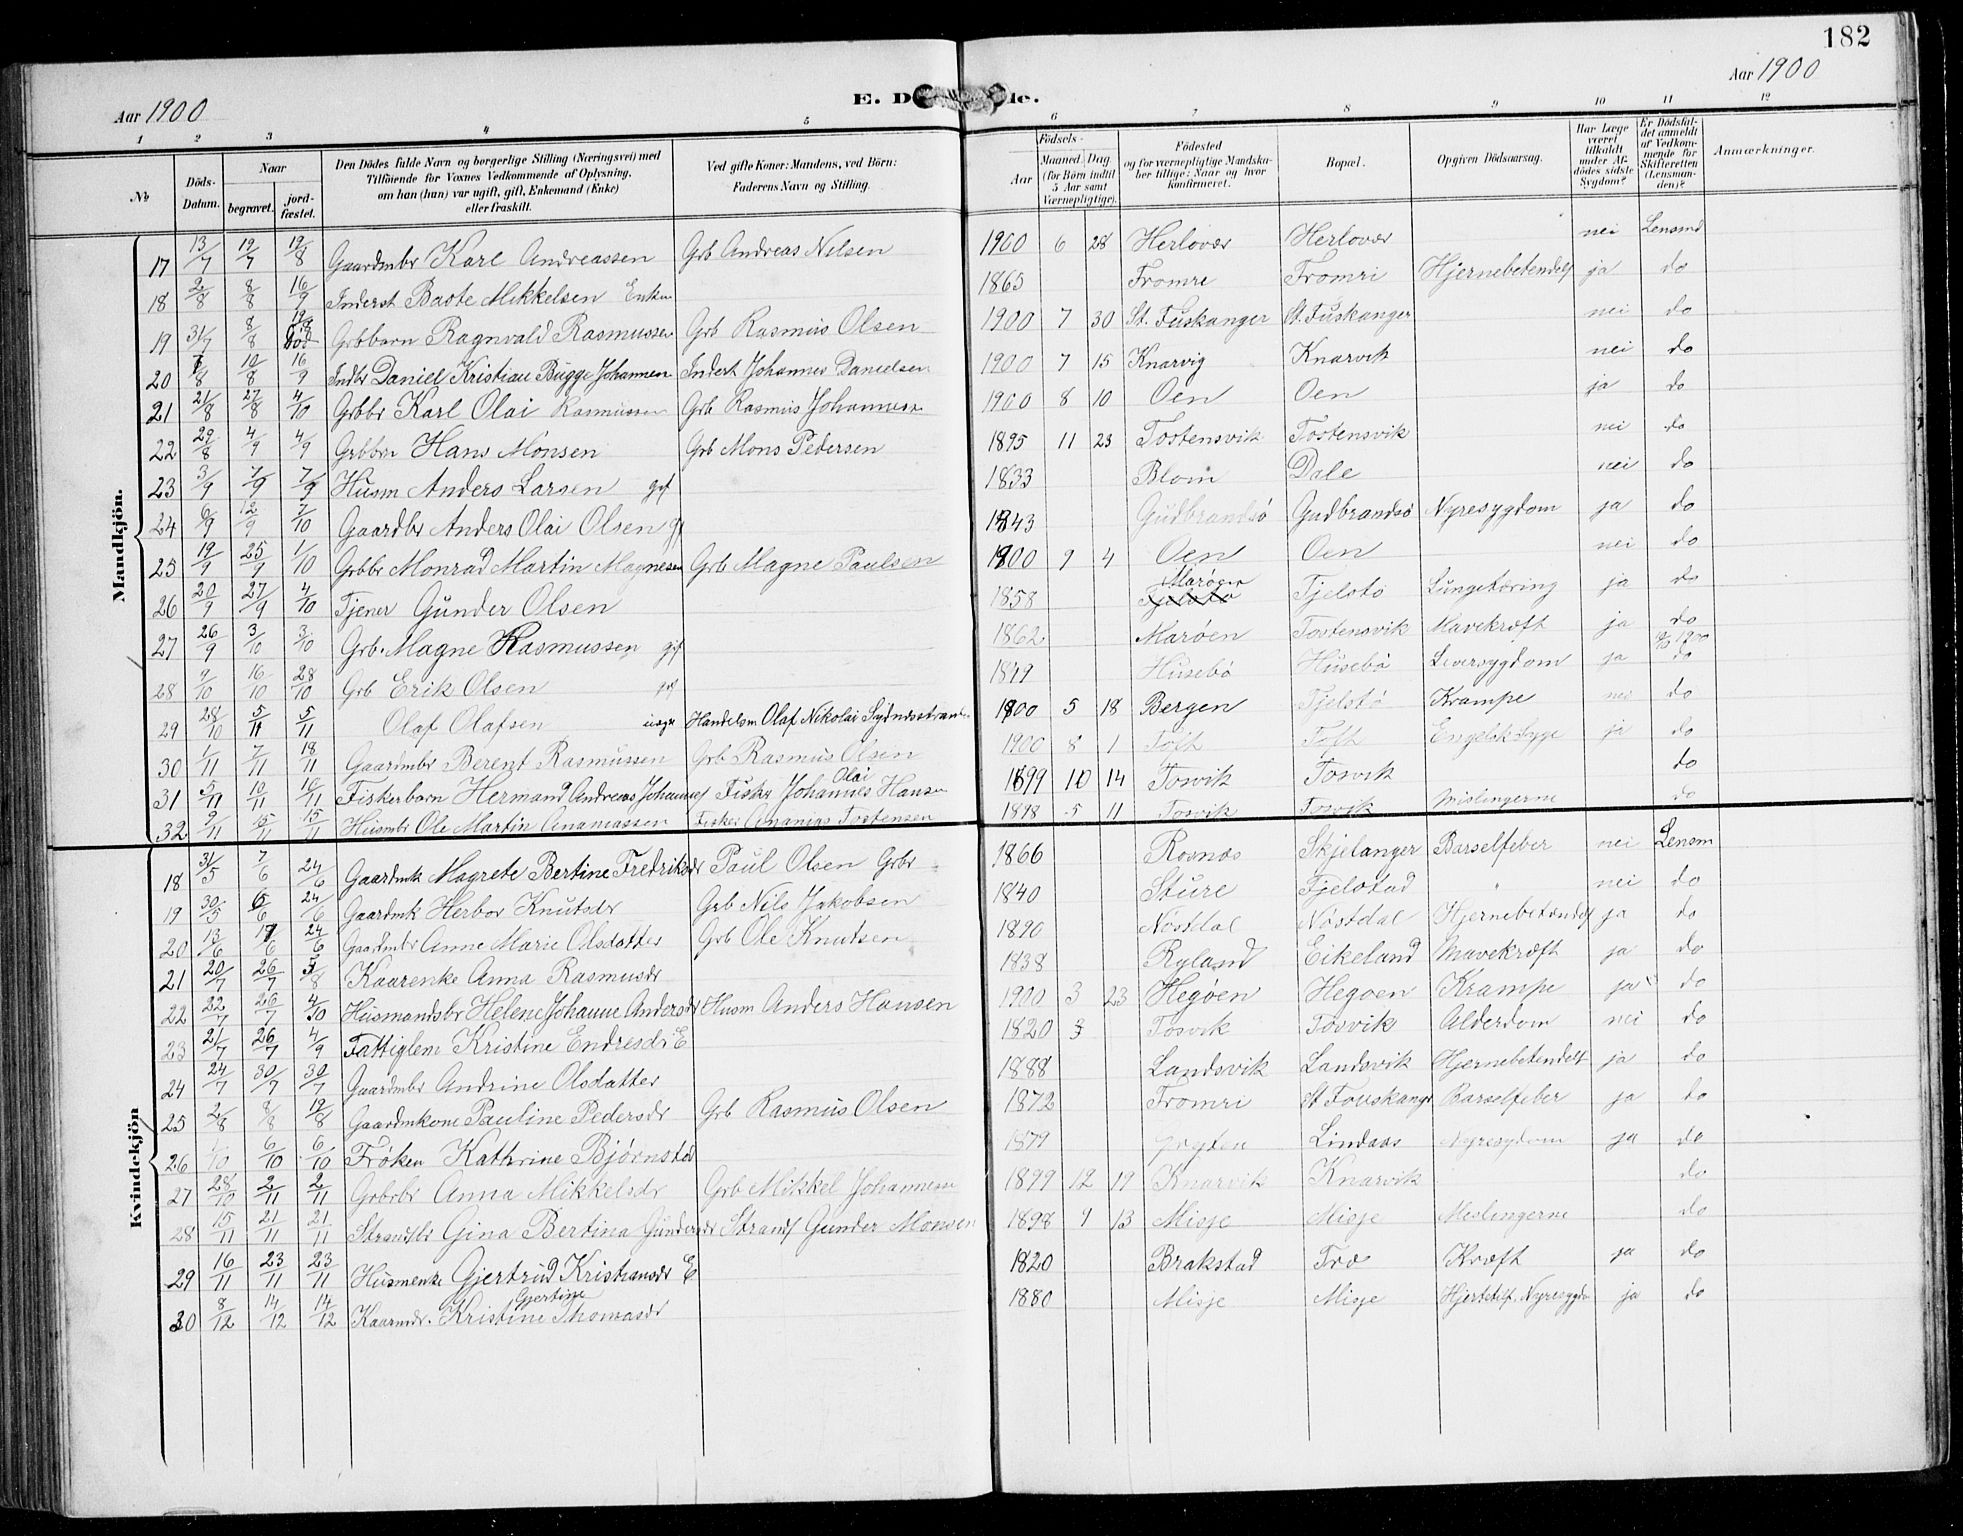 182
Aar 1900 E. D de. Aar 1900
1 2 3 4 5 6 7 8 9 10 11 12
№ Döds-Datum. Naar begravet. jord-fæstet. Den Dödes fulde Navn og borgerlige Stilling (Næringsvei) med Tilföiende for Voxnes Vedkommende af Oplysning, om han (hun) var ugift, gift, Enkemand (Enke) eller fraskilt. Ved gifte Koner: Mandens, ved Börn: Faderens Navn og Stilling. Födsels- Aar Maaned. Dag (for Börn indtil 5 Aar samt Værnepligtige). Födested og for værnepligtige Mandskaber tillige: Naar og hvor konfirmeret. Bopæl. Opgiven Dödsaarsag. Har Læge været tilkaldt under Afdödes sidste Sygdom? Er Dödsfaldet anmeldt af Vedkommende for Skifteretten (Lensmanden)? Anmærkninger.
Mandkjön.
17 13/7 19/7 19/8 Gaardmbr Karl Andreassen Grb Andreas Nilsen 1900 6 28 Herlovær Herlovær nei Lensmd
18 2/8 8/8 16/9 Inderst Baote Mikkelsen Enkm 1865 Fromre Fromri Hjernebetendels ja do
19 31/7 8/8 19/8 Grbbarn Ragnvald Rasmussen Grb Rasmus Olsen 1900 7 30 St. Fuskanger St. Fuskanger nei do
20 7/8 10/8 16/9 Indbr Daniel Kristian Bugge Johannen Inderst Johannes Danielsen 1900 7 15 Knarvig Knarvik nei do
21 21/8 27/8 4/10 Grbbr Karl Olai Rasmussen Grb Rasmus Johannesn 1900 8 10 Oen Oen ja do
22 29/8 4/9 4/9 Grbbrn Hans Monsen Grb Mons Pedersen 1895 11 23 Tostensvik Tostensvik nei do
23 3/9 7/9 7/9 Husm Anders Larsen gif 1833 Blom Dale nei do
24 6/9 12/9 7/10 Gaardbr Anders Olai Olsen gf 1843 Gudbrandsø Gudbrandsø Nyresygdom ja do
25 19/9 25/9 1/10 Grbbr Monrad Martin Magnesen Grb Magne Paulsen 1900 9 4 Oen Oen nei do
26 20/9 27/9 4/10 Tjener Gunder Olsen 1858 Marøen Tjelsto Tjelsto Lungetæring ja do
27 26/9 3/10 3/10 Grb. Magne Rasmussen gif 1862 Marøen Tostensvik Mavekræft ja do
28 9/10 16/10 28/10 Grb Erik Olsen gif 1849 Husebø Husebø Leversygdom ja do
29 28/10 5/11 5/11 Olaf Olafsen Handelsm Olaf Nikolai Sydnesstrand 1900 5 18 Bergen Tjelstø Krampe nei do
30 1/11 7/11 18/11 Gaardmbr Berent Rasmussen Grb Rasmus Olsen 1900 8 1 Toft Toft Engelsk Syge ja do
31 5/11 10/11 10/11 Fiskerbarn Hermand Andreas Johannes Fisker Johannes Olai Hansen 1899 10 14 Tosvik Tosvik do
32 9/11 15/11 15/11 Husmbr Ole Martin Ananiassen Fisker Ananias Tostensen 1898 5 11 Tosvik Tosvik Mislingerne do
Kvindekjön
18 31/5 7/6 24/6 Gaardmk Magrete Bertine Fredriksdr Paul Olsen Grbr 1866 Rosnæs Skjelanger Barselfeber nei Lensm
19 30/5 6/6 24/6 Gaardmk Herbor Knutsdr Grb Nils Jakobsen 1840 Sture Fjelstad " nei do
20 13/6 17/6 24/6 Gaardmbr Anne Marie Olsdatter Grb Ole Knutsen 1890 Nøstdal Nøstdal Hjernebetændels ja do
21 20/7 26/7 5/8 Kaarenke Anna Rasmusdr 1838 Ryland Eikeland Mavekræft ja do
22 22/7 26/7 4/10 Husmandsbr Helene Johanne Andersdr Husm Anders Hansen 1900 3 23 Hegøen Hegoen Krampe ja do
23 21/7 26/7 4/9 Fattiglem Kristine Endresdr E 1820 3 Tosvik Tosvik Alderdom nei do
24 24/7 30/7 30/7 Gaardmbr Andrine Olsdatter 1888 Landsvik Landsvik Hjernebetendels ja do
25 2/8 8/8 19/8 Gaardmkone Pauline Pedersdr Grb Rasmus Olsen 1872 Fromri St. Fouskangr Barselfeber ja do
26 /10 6/10 6/10 Frøken Kathrine Bjørnstad 1879 Lindaas Nyresygdom ja do
27 28/10 2/11 2/11 Grbrbr Anna Mikkelsdr Grb Mikkel Johannesn 1899 12 19 Knarvik Knarvik do
28 15/11 21/11 21/11 Strandsbr Gina Bertina Gundersdr Strands Gunder Monsen 1898 9 13 Misje Misje Meslingerne do
29 16/11 23/11 23/11 Husmenke Gjertrud Kristiansdr E 1820 Brakstad Træ Kræft ja do
30 8/12 14/12 14/12 Kaarmdr. Kristine Gjertine Thomasdr 1880 Misje Misje Hjertelf. Nyresygdo ja do